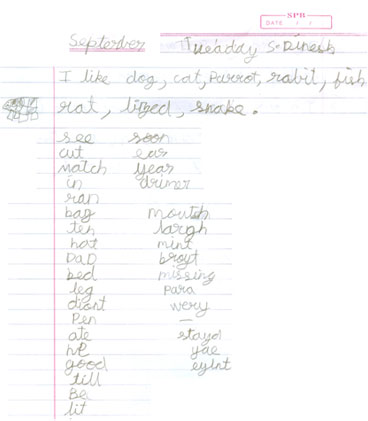 SPB
DATE / /
September Tueaday S. Dinesh
I like dog, cat, Parrot, rabit, fish
rat, lized, snake.
see soon
cut ear
match year
in driner
ran
bag mouth
ten largh
hat mint
DaD brayt
bed missing
leg Para
diont wery
Pen —
ate stayd
he yae
good eylnt
till
Be
lit